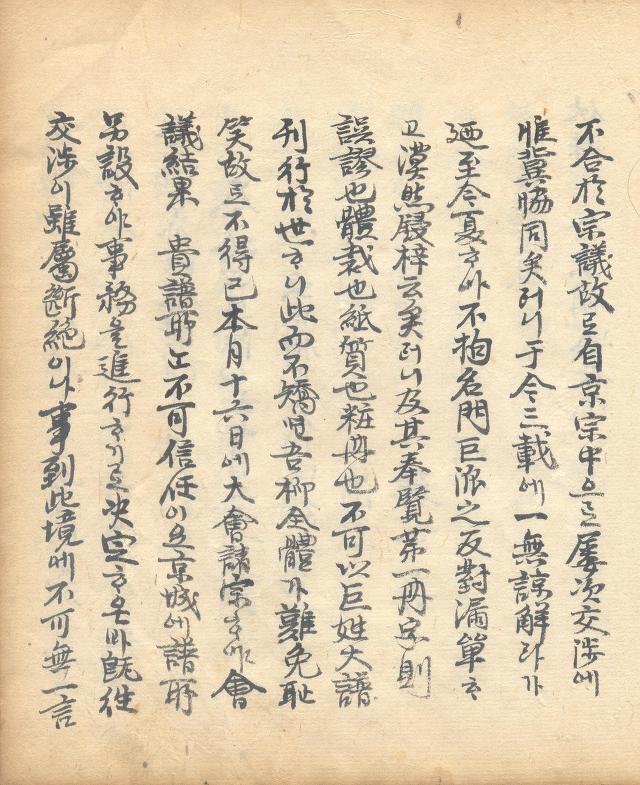 不合於宗議故로自京宗中으로屢次交涉에
惟冀恊同矣러니于今三載에一無諒解라가
廼至今夏하야不拘名門巨派之反對漏單하
고漠然殷梓云矣러니及其奉覽第一冊宗則
誤謬也體裁也紙質也粧冊也不可以巨姓大譜
刊行於世하니此而不矯면吾柳全體가難免恥
笑故로不得已本月十六日에大會諸宗하야會
議結果 貴譜所난不可信任이요京城에譜所
另設하야事務를進行하기로決定하온바旣往
交涉이雖屬斷絶이나事到此境에不可無一言